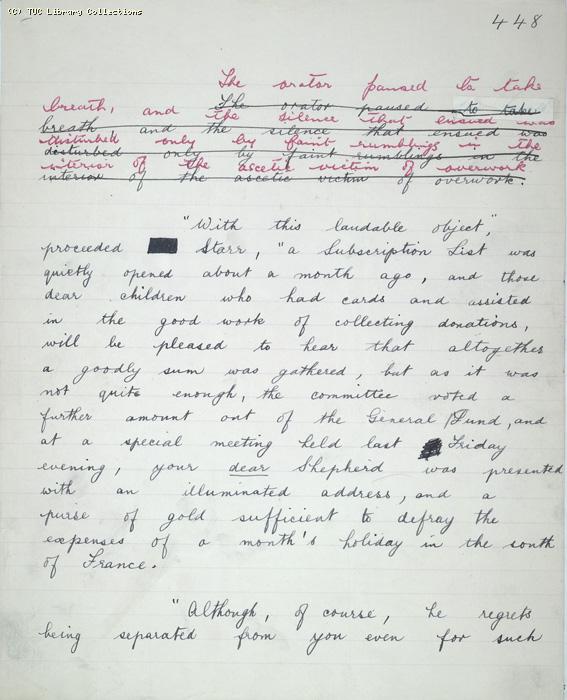 (C) TUC Library Collections
448
The orator paused to take
breath, and the silence that ensued was
The orator paused to take
breath and the silence that ensued was
disturbed only by faint rumblings in the
disturbed only by faint rumblings in the
interior of the ascetic victim of overwork
interior of the ascetic victim of overwork.
"With this laudable object",
proceeded Starr, "a Subscription List was
quietly opened about a month ago, and those
dear children who had cards and assisted
in the good work of collecting donations,
will be pleased to hear that altogether
a goodly sum was gathered, but as it was
not quite enough, the committee voted a
further amount out of the General Fund, and
at a special meeting held last Friday
evening, your dear Shepherd was presented
with an illuminated address, and a
purse of gold sufficient to defray the
expenses of a month's holiday in the south
of France.
"Although, of course, he regrets
being separated from you even for such